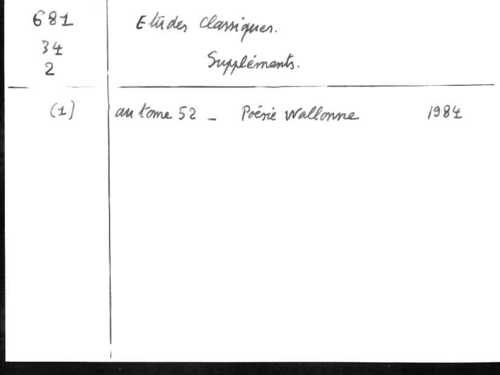 681 Etudes Classiques.
34
2 Suppléments.
(1) au tome 52 - Poésie Wallonne 1984